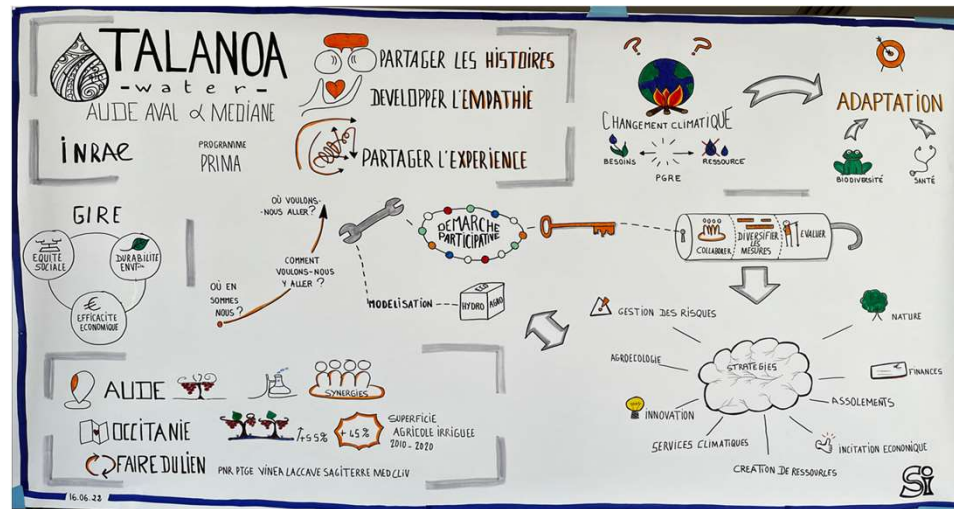 TALANOA
-water-
AUDE AVAL & MEDIANE
INRAE
PROGRAMME
PRIMA
PARTAGER LES HISTOIRES
DEVELOPPER L'EMPATHIE
PARTAGER L'EXPERIENCE
? ?
CHANGEMENT CLIMATIQUE
BESOINS
RESSOURCE
PGRE
ADAPTATION
BIODIVERSITÉ
SANTÉ
GIRE
EQUITÉ
SOCIALE
DURABILITÉ
ENVTale
€
EFFICACITÉ
ECONOMIQUE
OÙ EN
SOMMES
NOUS ?
COMMENT
VOULONS-NOUS
Y ALLER ?
OÙ VOULONS-
-NOUS ALLER ?
DEMARCHE
PARTICIPATIVE
MODELISATION
ECO
HYDRO
AGRO
COLLABORER
DIVERSIFIER
LES
MESURES
EVALUER
STRATÉGIES
GESTION DES RISQUES
AGROECOLOGIE
INNOVATION
SERVICES CLIMATIQUES
CREATION DE RESSOURCES
INCITATION ECONOMIQUE
ASSOLEMENTS
FINANCES
NATURE
AUDE
SYNERGIES
OCCITANIE
+55%
+45%
SUPERFICIE
AGRICOLE IRRIGUEE
2010-2020
FAIRE DU LIEN
PNR PTGE VINEA LACCAVE SAGITERRE MEDCLIV
16.06.22
Si